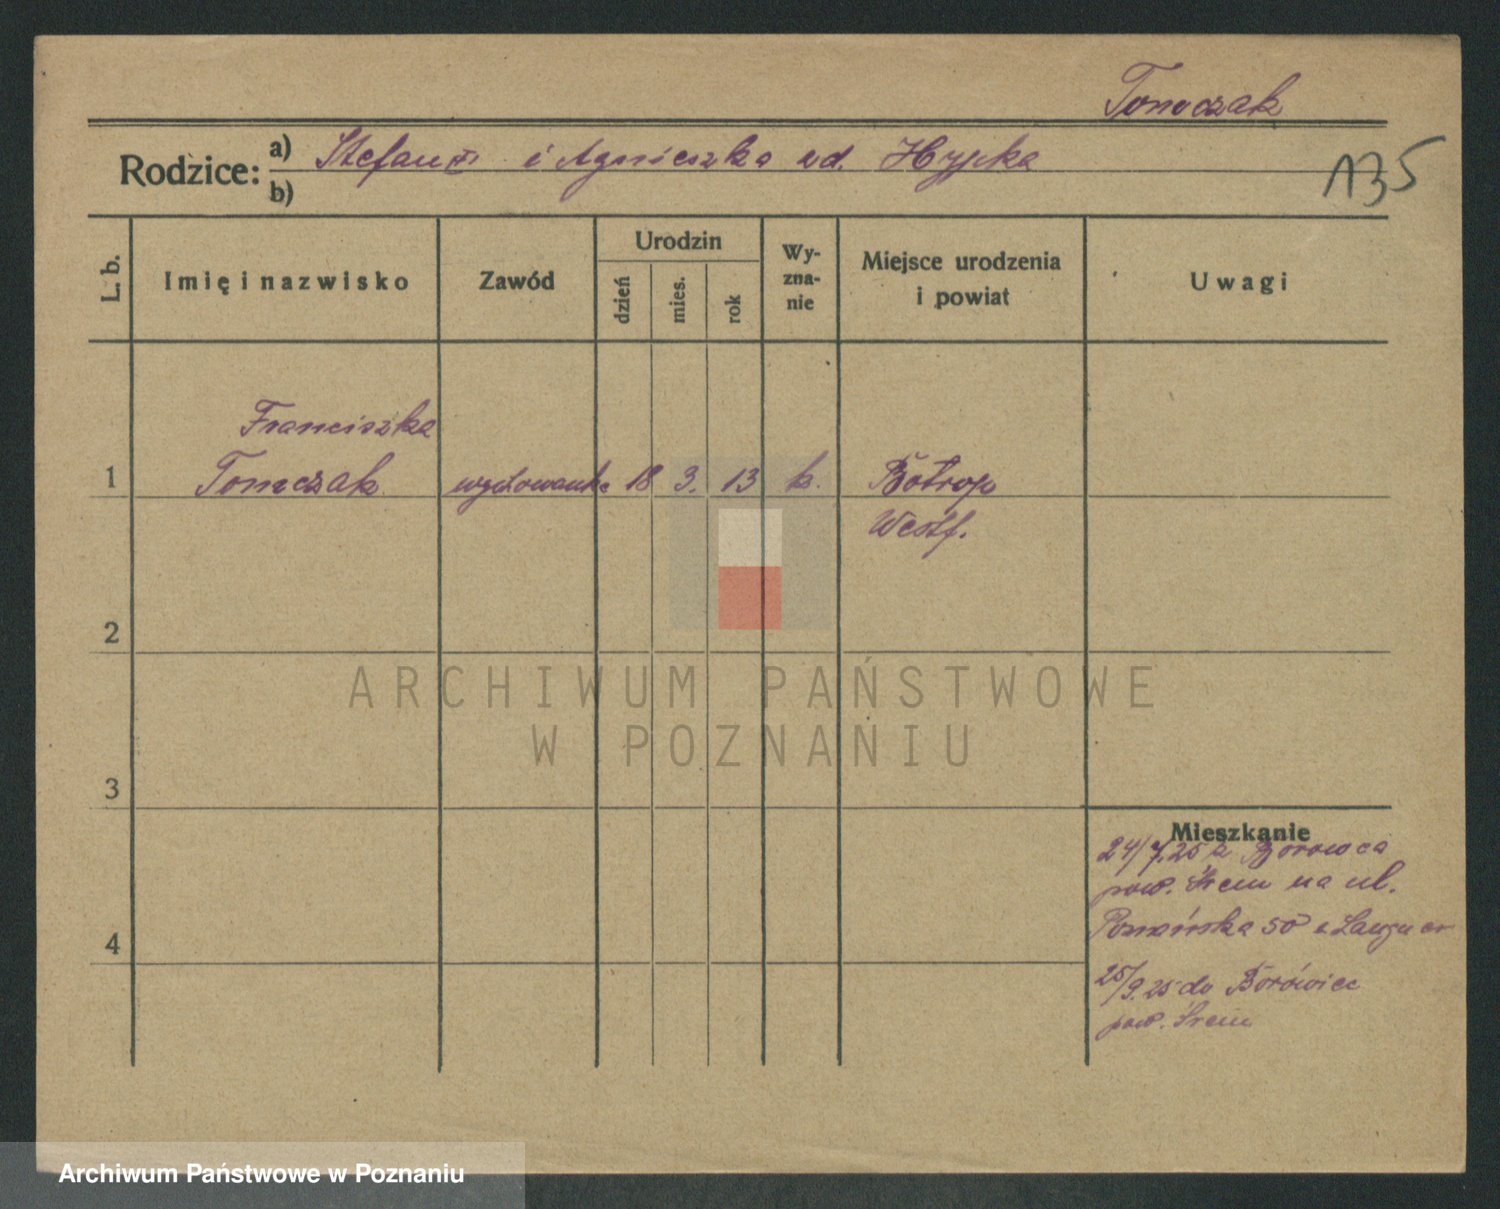 Tomczak
Rodzice: a) Stefan i Agnieszka ud. Hypka
b)
135
L. b.
Imię i nazwisko
Zawód
Urodzin
dzień
mies.
rok
Wy-
zna-
nie
Miejsce urodzenia
i powiat
Uwagi
Franciszka
1 Tomczak wychowanka 18 3. 13 k. Botrop
Westf.
2
ARCHIWUM PAŃSTWOWE
W POZNANIU
3
Mieszkanie
24/7.25 z Borowca
pow. Śrem na ul.
Poznańska 50 u Langner
4
25/9.25 do Borówiec
pow. Śrem
Archiwum Państwowe w Poznaniu